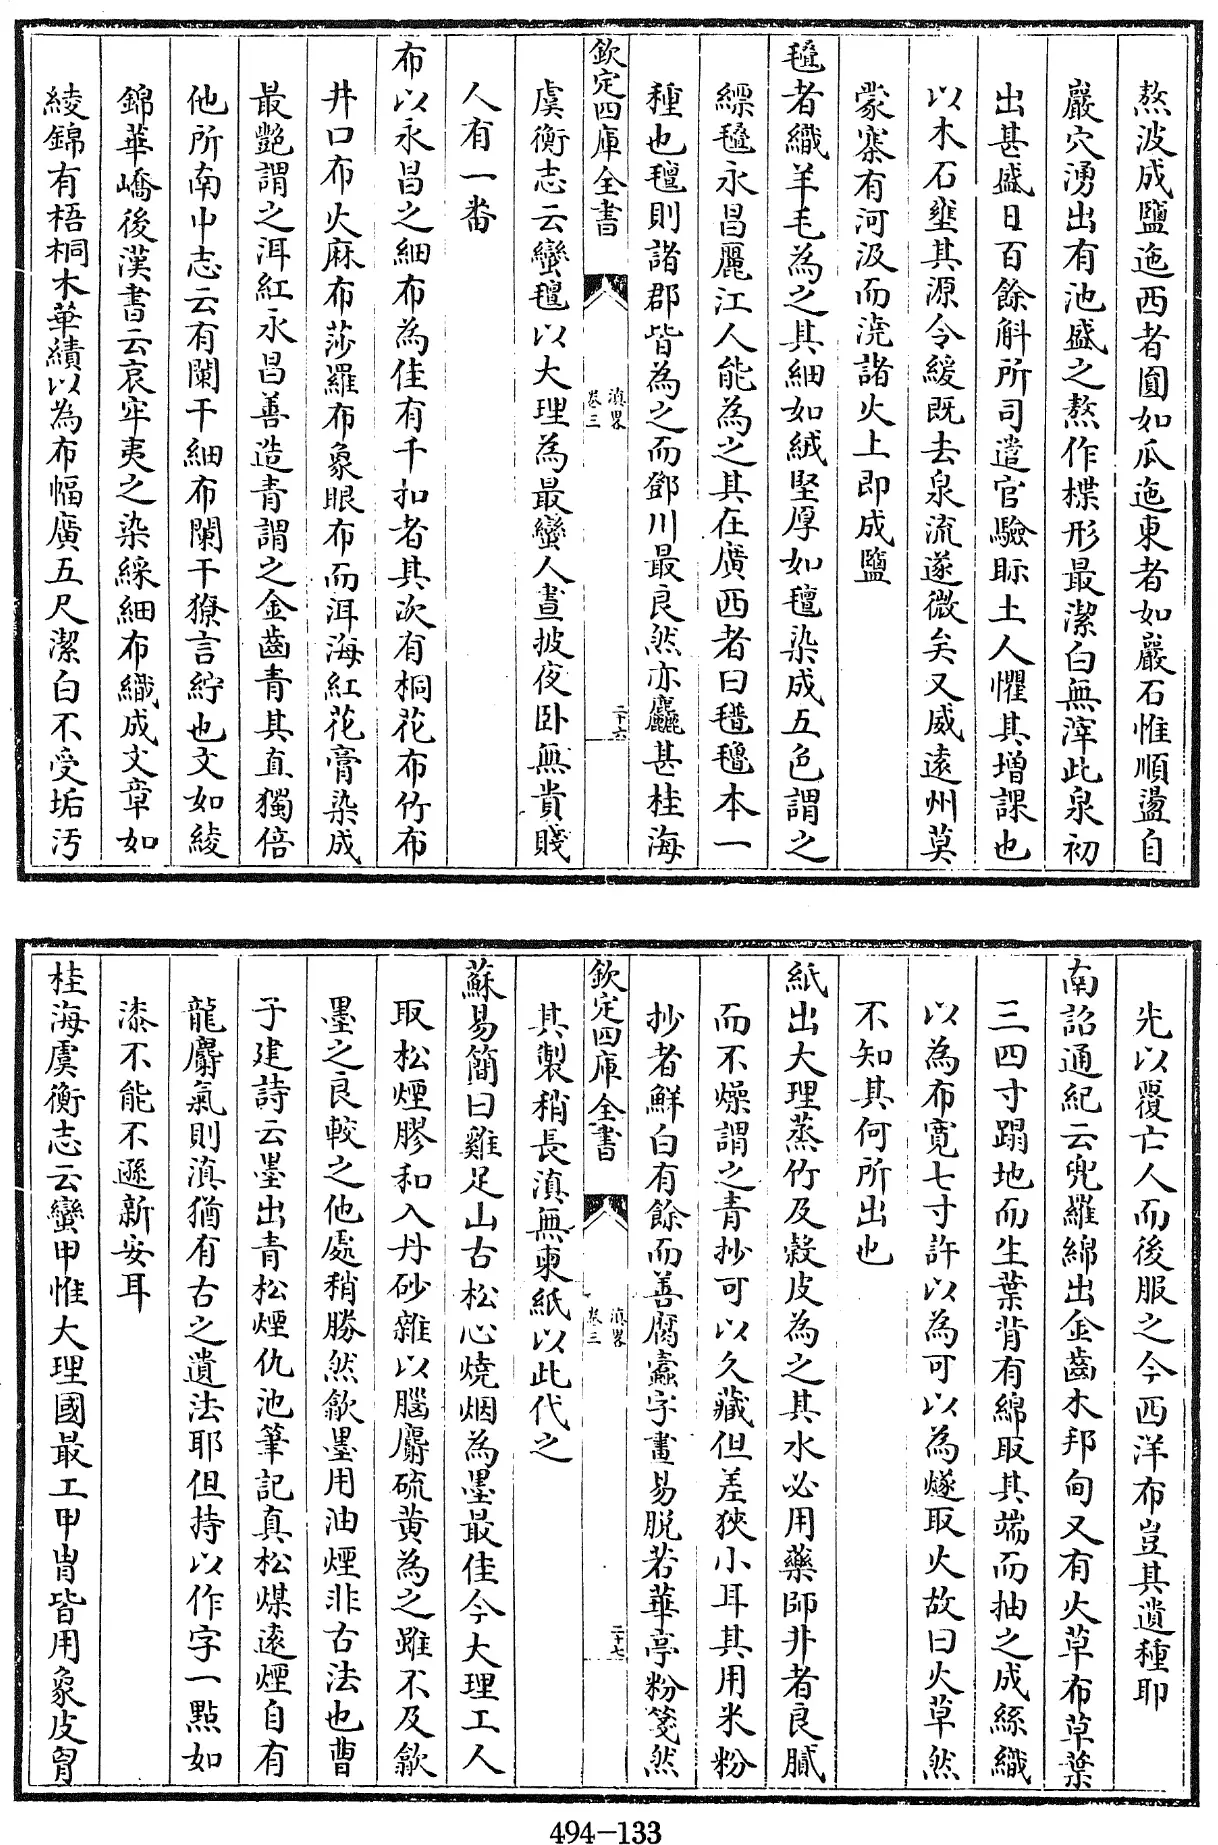 熬波成鹽迤西者圓如瓜迤東者如巖石惟順盪自
巖穴湧出有池盛之熬作楪形最潔白無滓此泉初
出甚盛日百餘斛所司遣官驗眎土人懼其增課也
以木石壅其源令緩既去泉流遂微矣又威遠州莫
蒙寨有河汲而澆諸火上即成鹽
氊者織羊毛為之其細如絨堅厚如氊染成五色謂之
縹氊永昌麗江人能為之其在廣西者曰氆氌本一
種也氊則諸郡皆為之而鄧川最良然亦麤甚桂海
欽定四庫全書
滇畧
卷三
二十六
虞衡志云蠻氊以大理為最蠻人晝披夜卧無貴賤
人有一番
布以永昌之細布為佳有千扣者其次有桐花布竹布
井口布火麻布莎羅布象眼布而洱海紅花膏染成
最艷謂之洱紅永昌善造青謂之金齒青其直獨倍
他所南中志云有闌干細布闌干獠言紵也文如綾
錦華嶠後漢書云哀牢夷之染綵細布織成文章如
綾錦有梧桐木華績以為布幅廣五尺潔白不受垢汚
先以覆亡人而後服之今西洋布豈其遺種耶
南詔通紀云兜羅綿出金齒木邦甸又有火草布草葉
三四寸蹋地而生葉背有綿取其端而抽之成絲織
以為布寛七寸許以為可以為燧取火故曰火草然
不知其何所出也
紙出大理蒸竹及榖皮為之其水必用藥師井者良膩
而不燥謂之青抄可以久藏但差狹小耳其用米粉
抄者鮮白有餘而善腐蠧字畫易脱若華亭粉箋然
欽定四庫全書
滇畧
卷三
二十七
其製稍長滇無柬紙以此代之
蘇易簡曰雞足山古松心燒烟為墨最佳今大理工人
取松煙膠和入丹砂雜以腦麝硫黄為之雖不及歙
墨之良較之他處稍勝然歙墨用油煙非古法也曹
子建詩云墨出青松煙仇池筆記真松煤遠煙自有
龍麝氣則滇猶有古之遺法耶但持以作字一點如
漆不能不遜新安耳
桂海虞衡志云蠻甲惟大理國最工甲胄皆用象皮胷
494-133